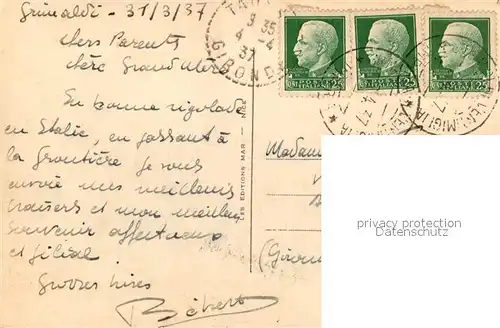 Grimaldi - 31/3/37
chers Parents
chère Grand Mère
En bonne rigolade
en Italie, en passant à
la frontière je vous
envoie mes meilleurs
baisers et mon meilleur
souvenir affectueux
et filial.
Grosses bises
Bébert
LES EDITIONS MAR - NICE
GIRONDE
37
25
25
25
VENTIMIGLIA
Madame
(Gironde
privacy protection
Datenschutz